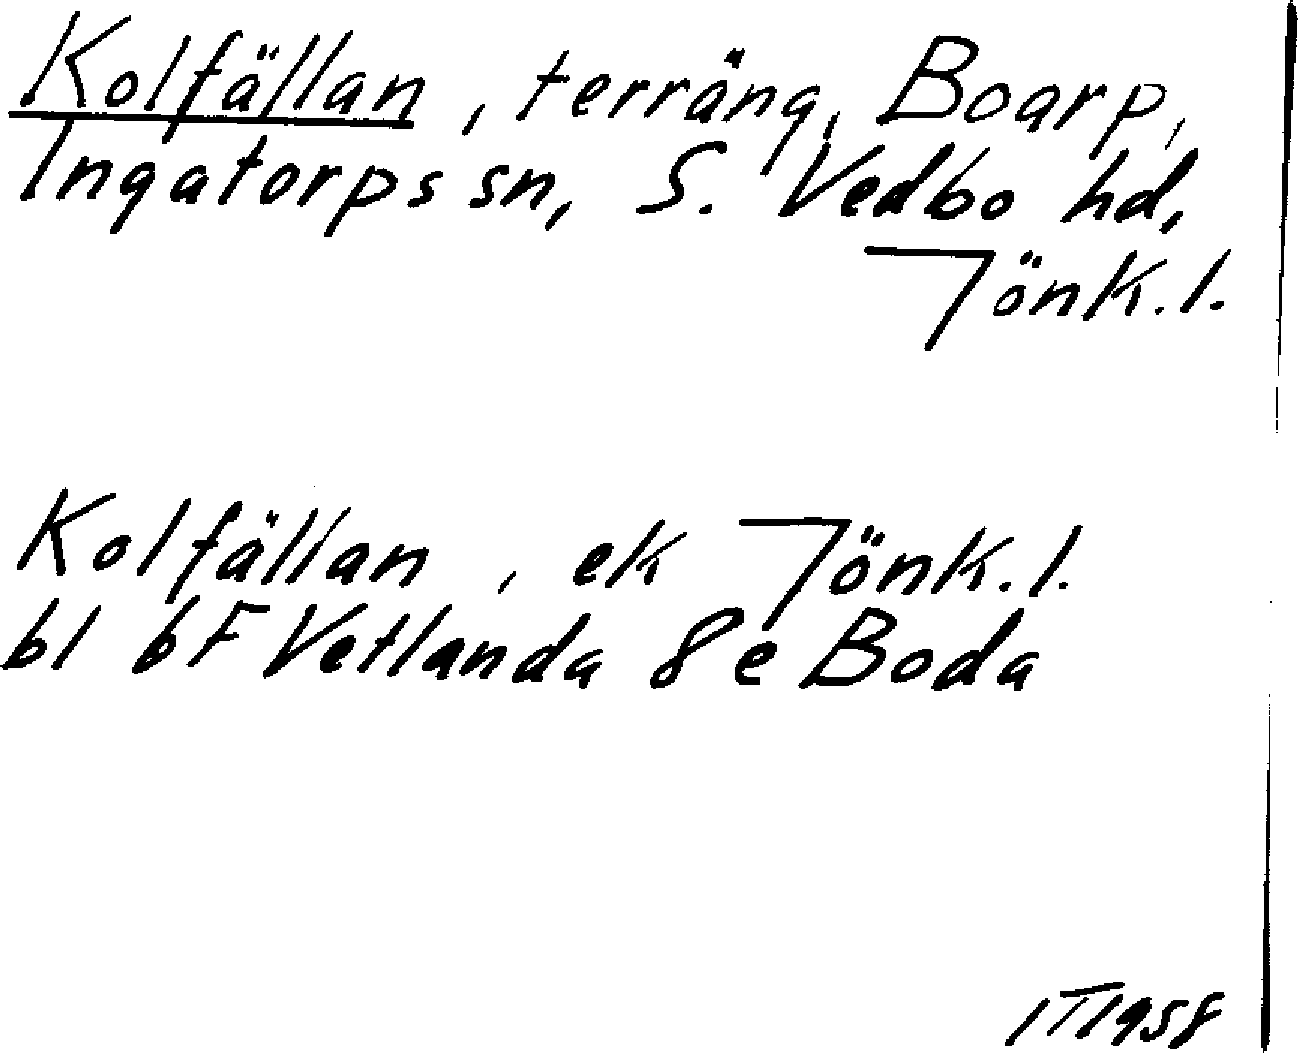 Kolfällan, terräng, Boarp,
Ingatorps sn, S. Vedbo hd,
Jönk. l.
Kolfällan, ek Jönk. l.
bl 6F Vetlanda 8e Boda
IT1958